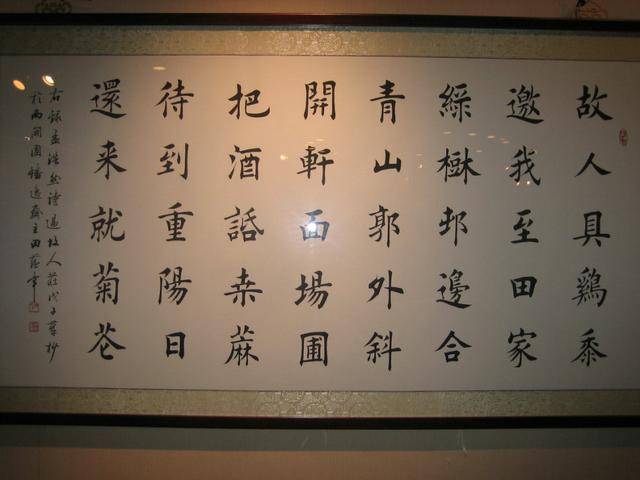 故人具鷄黍
邀我至田家
綠樹邨邊合
青山郭外斜
開軒面場圃
把酒話桒麻
待到重陽日
還来就菊苍
右錄孟浩然詩過故人莊戊子暮秒
於兩閣園播逸齋主田蔭亭